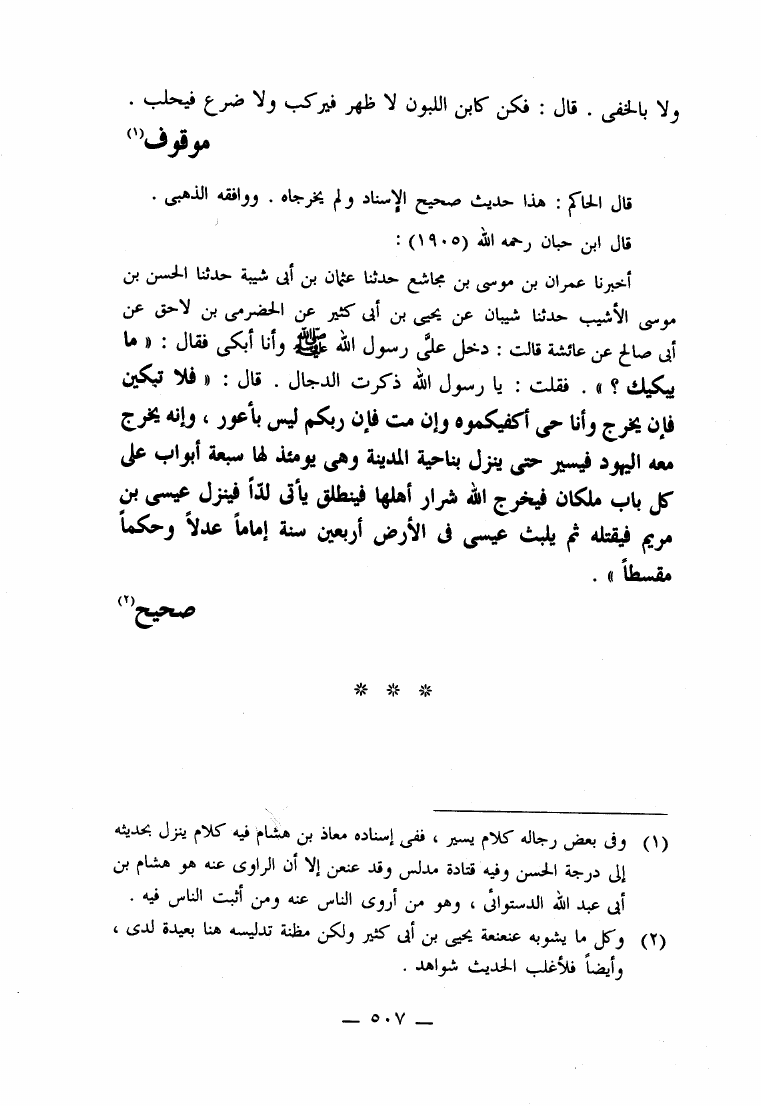 ولا بالخفى . قال : فكن كابن اللبون لا ظهر فيركب ولا ضرع فيحلب .
موقوف(١)
قال الحاكم : هذا حديث صحيح الإسناد ولم يخرجاه . ووافقه الذهبى .
قال ابن حبان رحمه الله (١٩٠٥) :
أخبرنا عمران بن موسى بن مجاشع حدثنا عثمان بن أبى شيبة حدثنا الحسن بن
موسى الأشيب حدثنا شيبان عن يحيى بن أبى كثير عن الحضرمى بن لاحق عن
أبى صالح عن عائشة قالت : دخل علىَّ رسول الله ﷺ وأنا أبكى فقال : « ما
يبكيك ؟ » . فقلت : يا رسول الله ذكرت الدجال . قال : « فلا تبكين
فإن يخرج وأنا حى أكفيكموه وإن مت فإن ربكم ليس بأعور ، وإنه يخرج
معه اليهود فيسير حتى ينزل بناحية المدينة وهى يومئذ لها سبعة أبواب على
كل باب ملكان فيخرج الله شرار أهلها فينطلق يأتى لدّاً فينزل عيسى بن
مريم فيقتله ثم يلبث عيسى فى الأرض أربعين سنة إماماً عدلاً وحكماً
مقسطاً » .
صحيح(٢)
* * *
(١) وفى بعض رجاله كلام يسير ، ففى إسناده معاذ بن هشام فيه كلام ينزل بحديثه
إلى درجة الحسن وفيه قتادة مدلس وقد عنعن إلا أن الراوى عنه هو هشام بن
أبى عبد الله الدستوائى ، وهو من أروى الناس عنه ومن أثبت الناس فيه .
(٢) وكل ما يشوبه عنعنة يحيى بن أبى كثير ولكن مظنة تدليسه هنا بعيدة لدى ،
وأيضاً فلأغلب الحديث شواهد .
— ٥٠٧ —